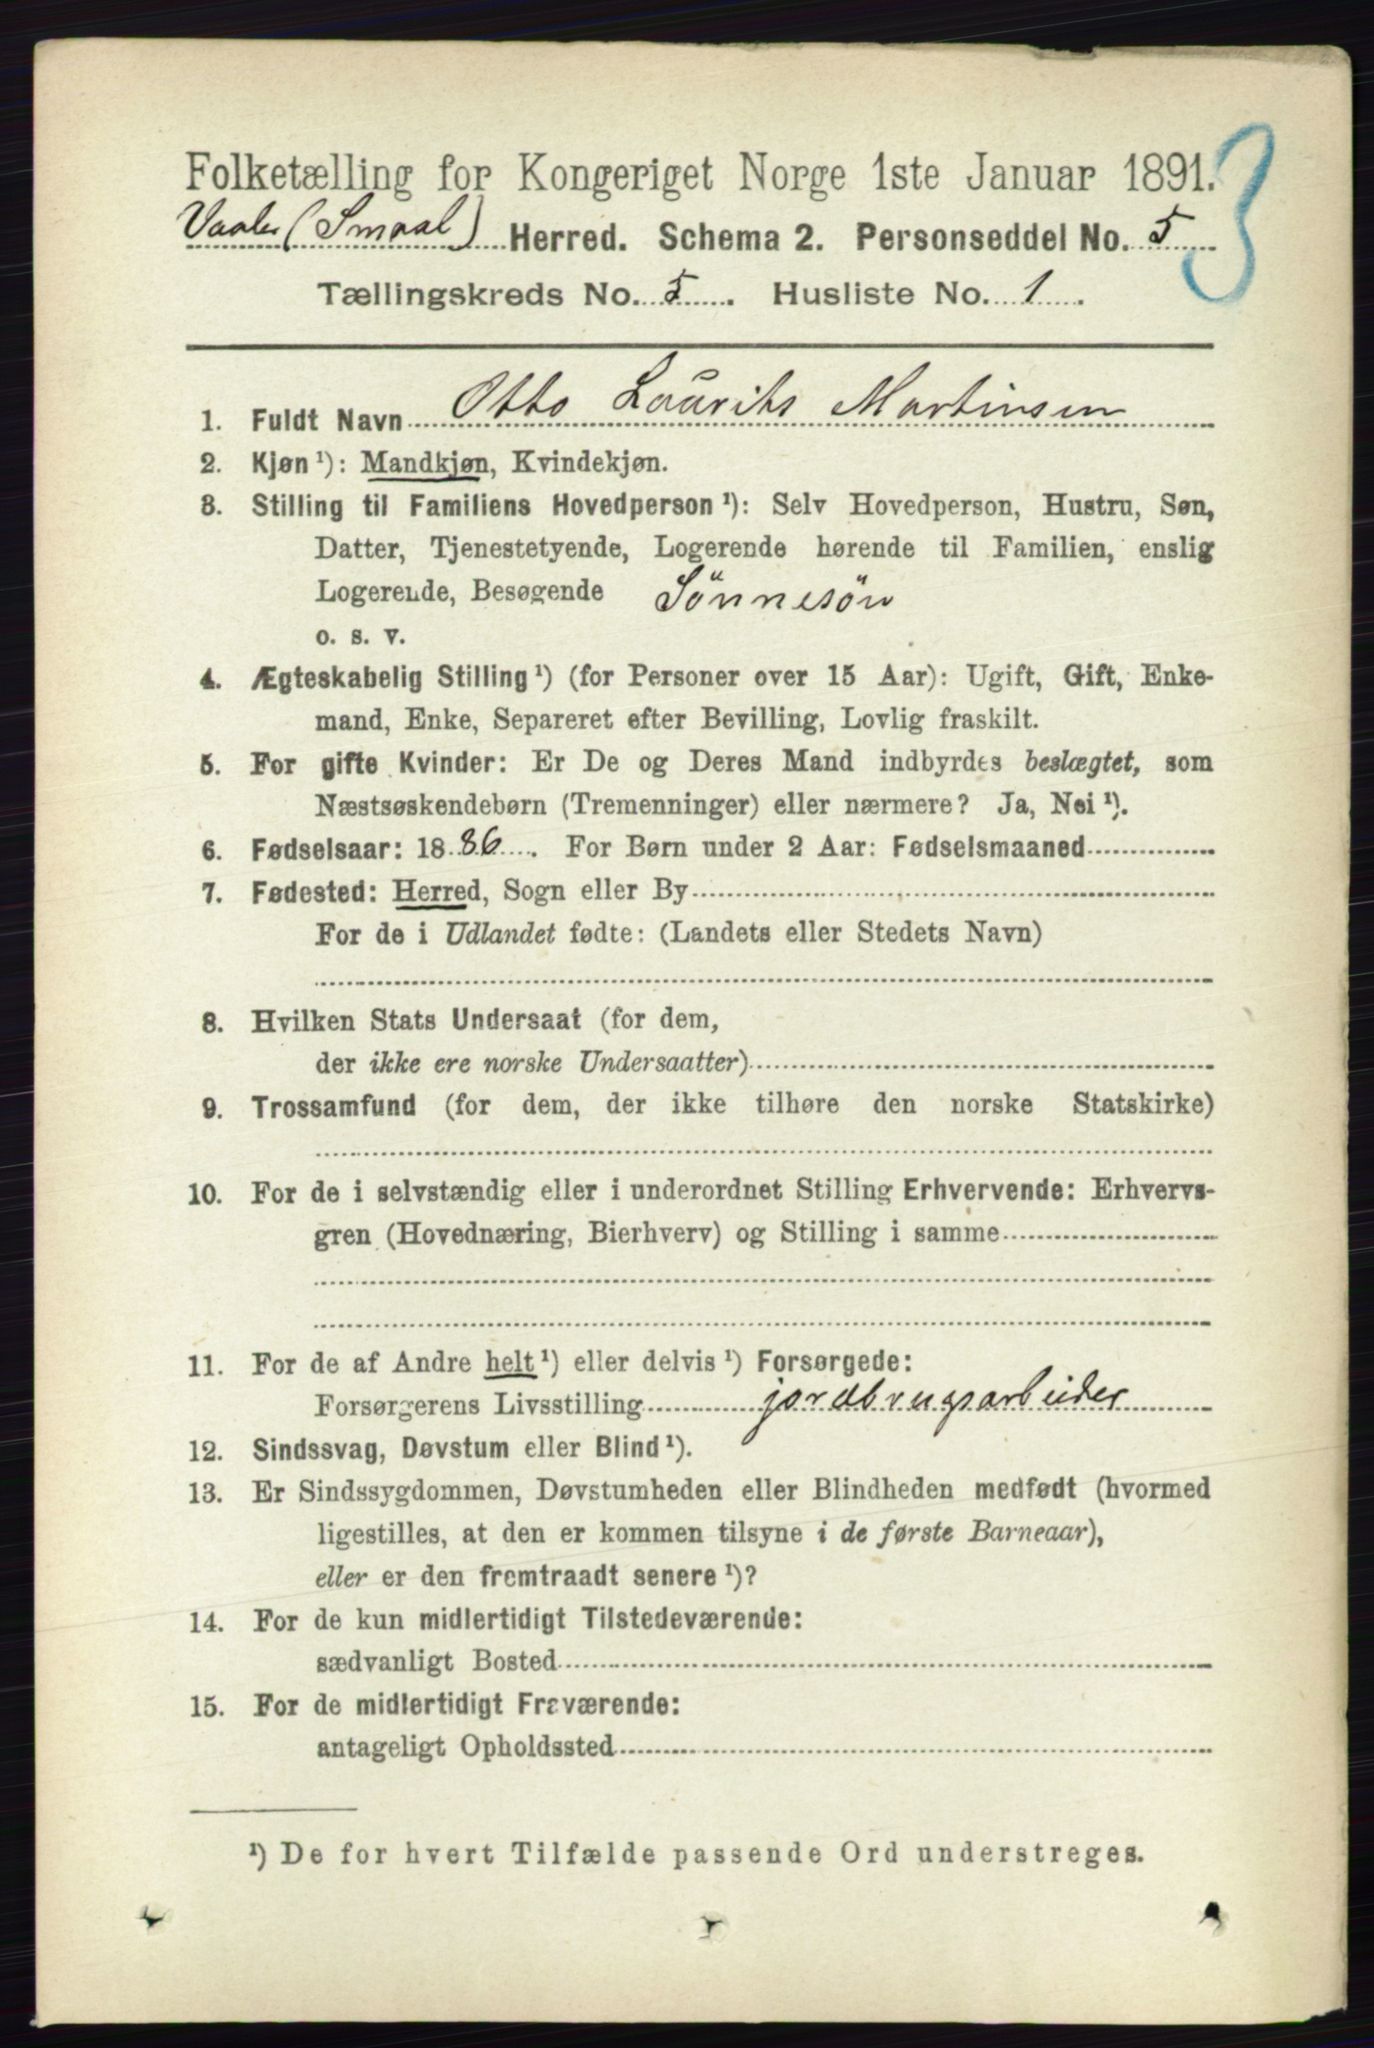 Folketælling for Kongeriget Norge 1ste Januar 1891.
3
Vaaler (Smaal) Herred. Schema 2. Personseddel No. 5
Tællingskreds No. 5. Husliste No. 1.
1. Fuldt Navn Otto Laurits Martinsen
2. Kjøn¹): Mandkjøn, Kvindekjøn.
3. Stilling til Familiens Hovedperson¹): Selv Hovedperson, Hustru, Søn,
Datter, Tjenestetyende, Logerende hørende til Familien, enslig
Logerende, Besøgende Sönnesön
o. s. v.
4. Ægteskabelig Stilling¹) (for Personer over 15 Aar): Ugift, Gift, Enke-
mand, Enke, Separeret efter Bevilling, Lovlig fraskilt.
5. For gifte Kvinder: Er De og Deres Mand indbyrdes beslægtet, som
Næstsøskendebørn (Tremenninger) eller nærmere? Ja, Nei¹).
6. Fødselsaar: 1886. For Børn under 2 Aar: Fødselsmaaned
7. Fødested: Herred, Sogn eller By
For de i Udlandet fødte: (Landets eller Stedets Navn)
8. Hvilken Stats Undersaat (for dem,
der ikke ere norske Undersaatter)
9. Trossamfund (for dem, der ikke tilhøre den norske Statskirke)
10. For de i selvstændig eller i underordnet Stilling Erhvervende: Erhvervs-
gren (Hovednæring, Bierhverv) og Stilling i samme
11. For de af Andre helt¹) eller delvis¹) Forsørgede:
Forsørgerens Livsstilling jordbrugsarbeider
12. Sindssvag, Døvstum eller Blind¹).
13. Er Sindssygdommen, Døvstumheden eller Blindheden medfødt (hvormed
ligestilles, at den er kommen tilsyne i de første Barneaar),
eller er den fremtraadt senere¹)?
14. For de kun midlertidigt Tilstedeværende:
sædvanligt Bosted
15. For de midlertidigt Fraværende:
antageligt Opholdssted
¹) De for hvert Tilfælde passende Ord understreges.